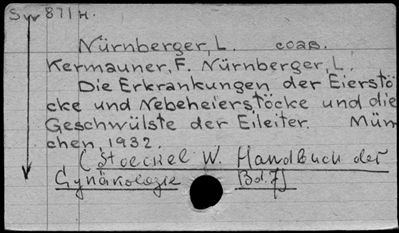 Syr 871 H.
Nürnberger, L. соав.
Kermauner, F. Nürnberger, L.
Die Erkrankungen der Eierstö
cke und Nebeheierstöcke und die
Geschwülste der Eileiter. Mün
chen, 1932.
(Stoeckel W. Handbuch der
Gynäkologie Bd.7)